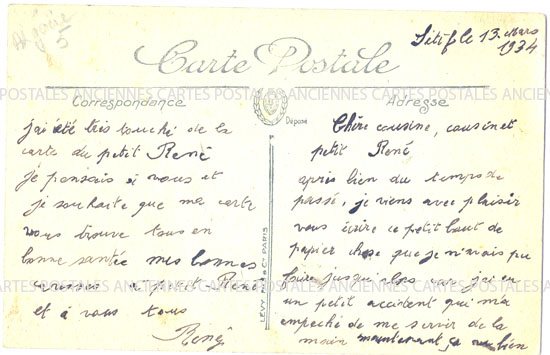 Algérie
5
Sétif le 13 Mars
1934
Carte Postale
CARTES POSTALES ANCIENNES CARTES POSTALES ANCIENNES
Correspondance
Adresse
Déposé
Chère cousine, cousin et
petit René
après bien du temps de
passé, je viens avec plaisir
vous écrire ce petit bout de
papier chose que je n'avais pu
faire jusqu'alors car j'ai eu
un petit accident qui m'a
empeché de me servir de la
main maintenant ça va bien
j'ai été très touché de la
carte du petit René
je pensais à vous et
je souhaite que ma carte
vous trouve tous en
bonne santée mes bonnes
à petit René
et à vous tous
René
LEVY & Cie PARIS